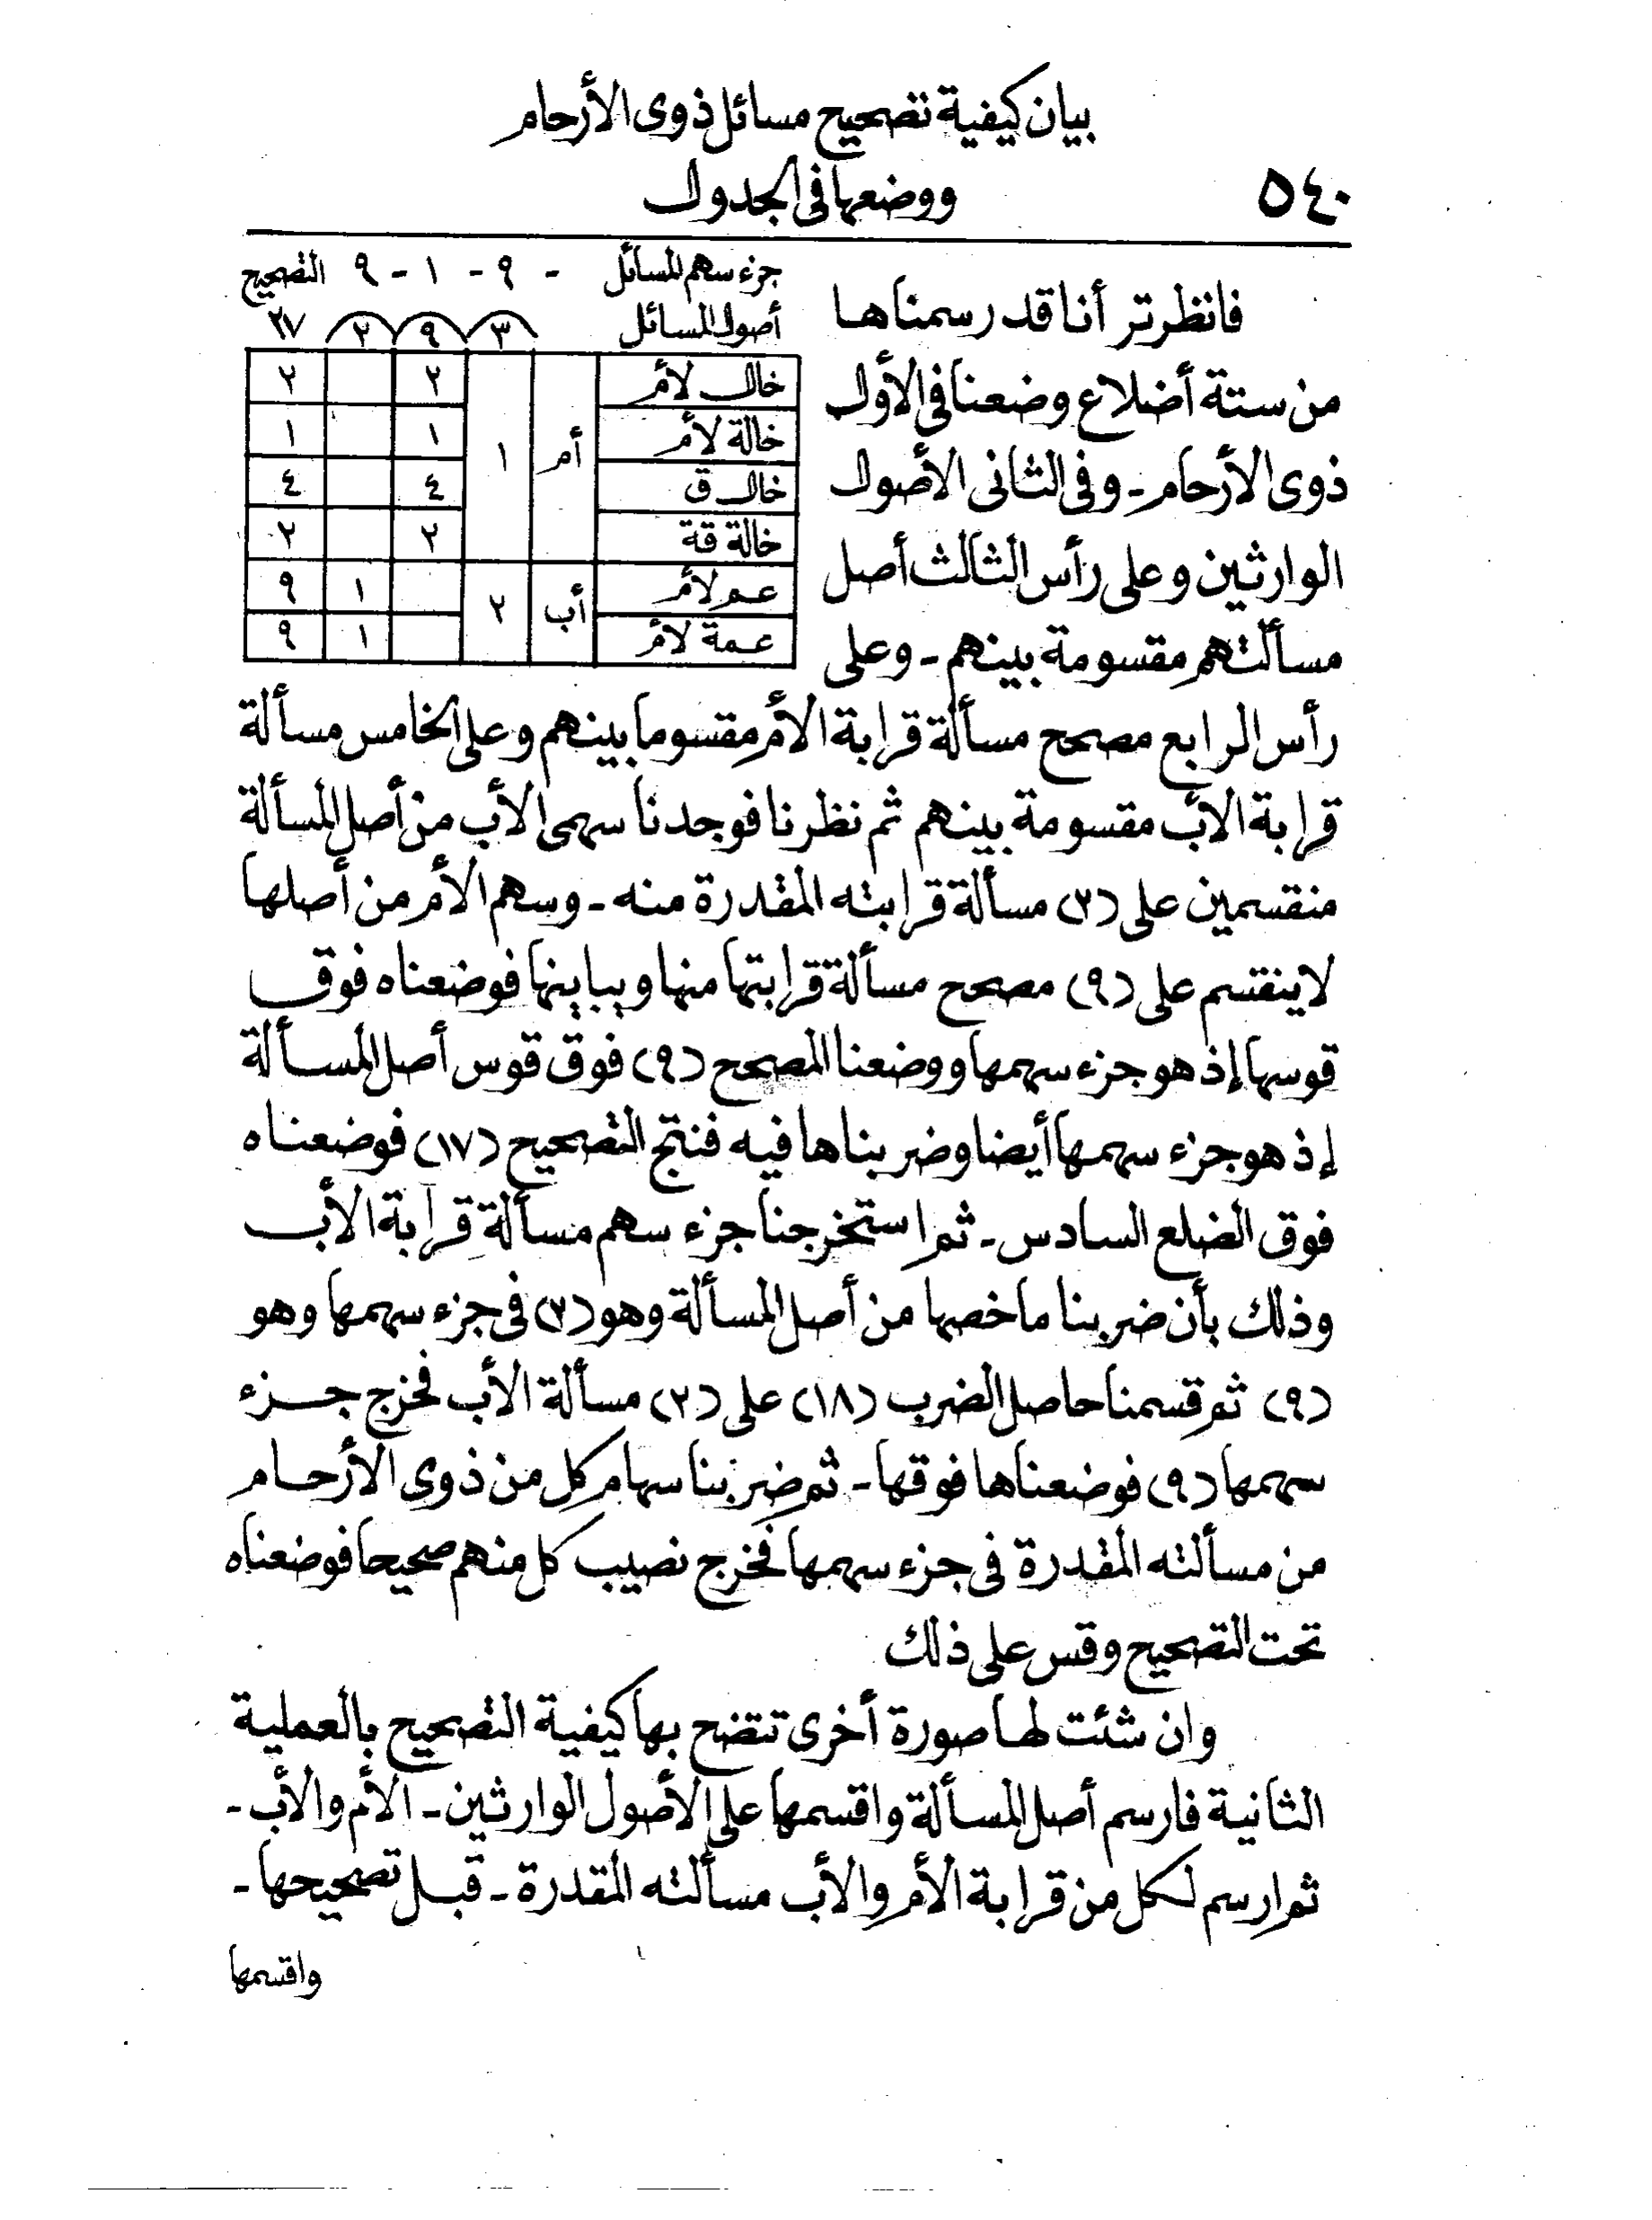 بيان كيفية تصحيح مسائل ذوى الأرحام
٥٤٠ ووضعها فى الجدول
جزء سهم المسائل - ٩ - ١ - ٩ التصحيح
أصول المسائل ٣ ٩ ٢ ٢٧
خال لأم أم ١ ٢ ٢
خالة لأم ١ ١
خال ق ٤ ٤
خالة قة ٢ ٢
عم لأم أب ٢ ١ ٩
عمة لأم ١ ٩
فانظر تر أنا قد رسمناها
من ستة أضلاع وضعنا فى الأول
ذوى الأرحام - وفى الثانى الأصول
الوارثين وعلى رأس الثالث أصل
مسألتهم مقسومة بينهم - وعلى
رأس الرابع مصحح مسألة قرابة الأم مقسوما بينهم وعلى الخامس مسألة
قرابة الأب مقسومة بينهم ثم نظرنا فوجدنا سهمى الأب من أصل المسألة
منقسمين على (٢) مسألة قرابته المقدرة منه - وسهم الأم من أصلها
لا ينقسم على (٩) مصحح مسألة قرابتها منها ويباينها فوضعناه فوق
قوسها إذ هو جزء سهمها ووضعنا المصحح (٩) فوق قوس أصل المسألة
إذ هو جزء سهمها أيضا وضربناها فيه فنتج التصحيح (١٧) فوضعناه
فوق الضلع السادس - ثم استخرجنا جزء سهم مسألة قرابة الأب
وذلك بأن ضربنا ما خصها من أصل المسألة وهو (٢) فى جزء سهمها وهو
(٩) ثم قسمنا حاصل الضرب (١٨) على (٢) مسألة الأب فخرج جزء
سهمها (٩) فوضعناها فوقها - ثم ضربنا سهام كل من ذوى الأرحام
من مسألته المقدرة فى جزء سهمها فخرج نصيب كل منهم صحيحا فوضعناه
تحت التصحيح وقس على ذلك
وان شئت لها صورة أخرى تتضح بها كيفية التصحيح بالعملية
الثانية فارسم أصل المسألة واقسمها على الأصول الوارثين - الأم والأب -
ثم ارسم لكل من قرابة الأم والأب مسألته المقدرة - قبل تصحيحها -
واقسمها